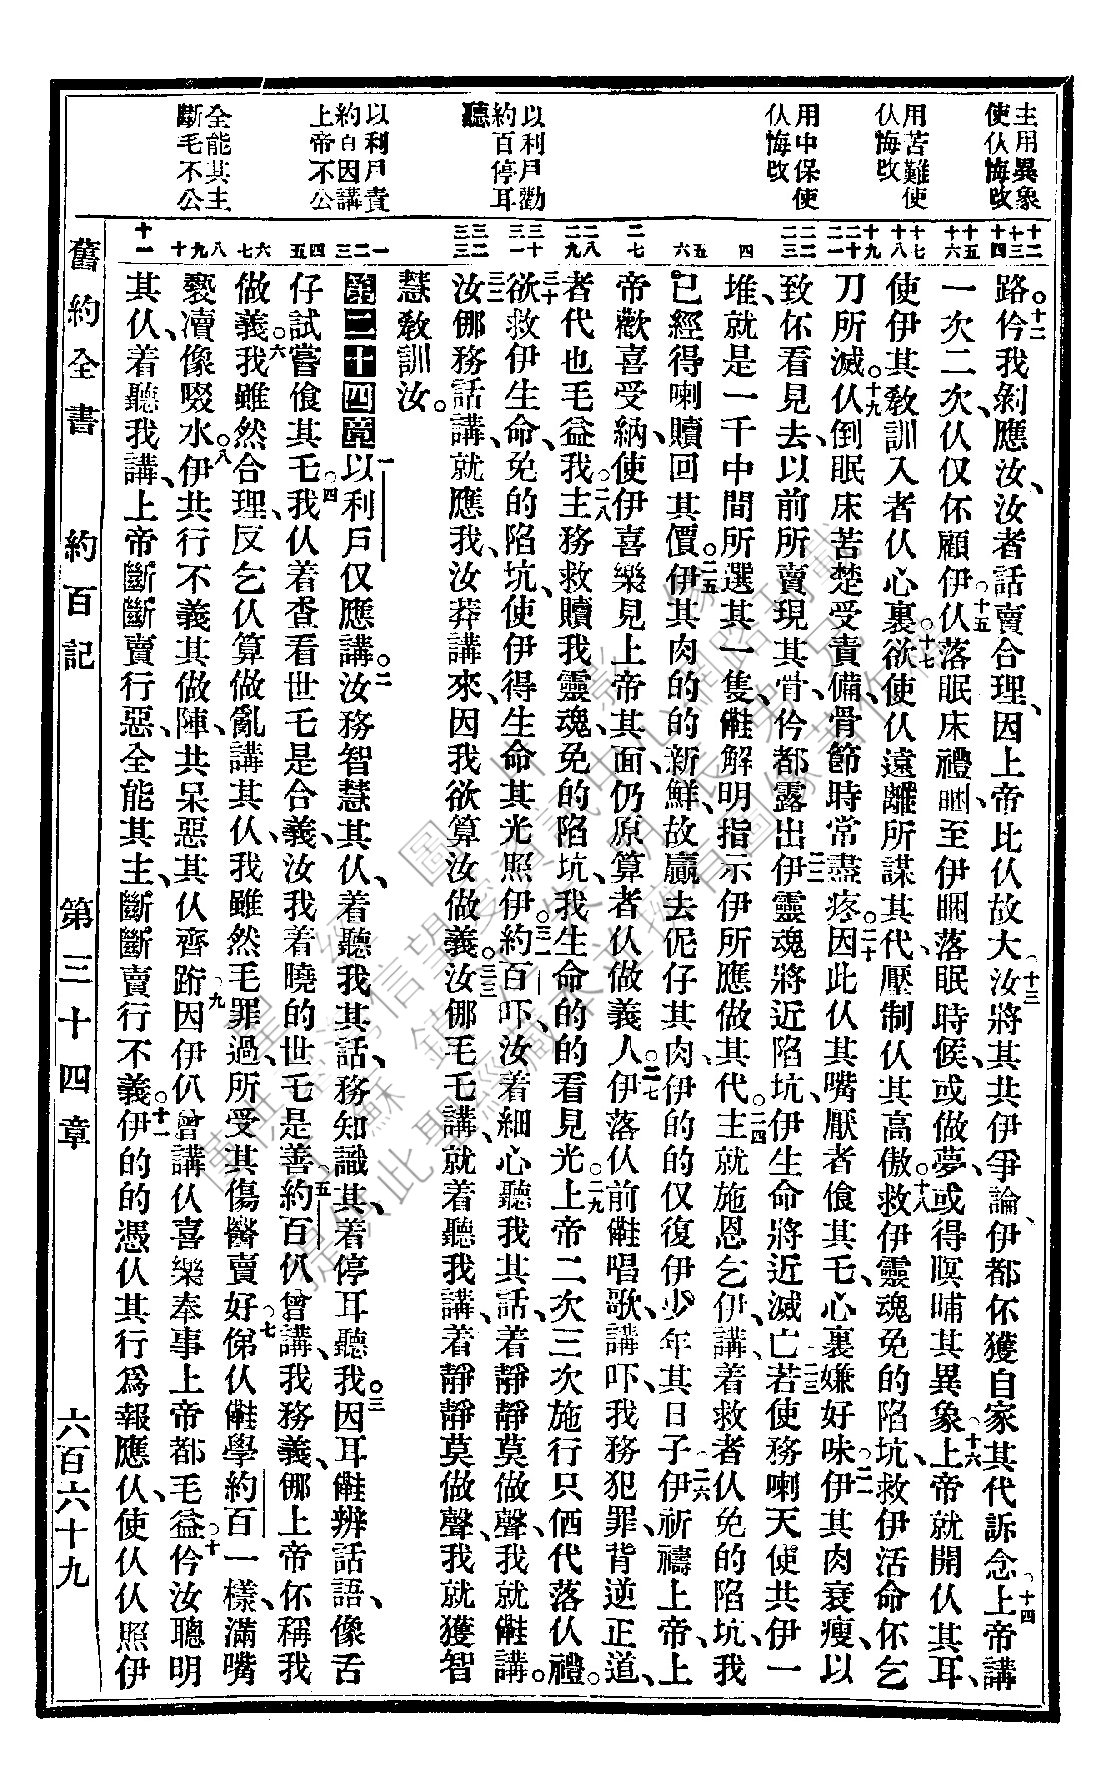 主用異象
使仈悔改
用苦難使
仈悔改
用中保使
仈悔改
以利戶勸
約百停耳
聽
以利戶責
約百因講
上帝不公
全能其主
斷毛不公
十二
十三
十四
十五
十六
十七
十八
十九
二十
二一
二二
二三
四
五
六
二七
二八
二九
三十
三一
三二
三三
一
二
三
四
五
六
七
八
九
十
十一
路。十二仱我剝應汝、汝者話賣合理、因上帝比仈故大、十三汝將其共伊爭論、伊都伓獲自家其代訴念、十四上帝講
一次二次、仈仅伓顧伊、十五仈落眠床禮睏、至伊睏落眠時候、或做夢、或得暝晡其異象、十六上帝就開仈其耳、
使伊其敎訓入者仈心裏、十七欲使仈遠離所謀其代、壓制仈其高傲、十八救伊靈魂免的陷坑、救伊活命伓乞
刀所滅。十九仈倒眠床苦楚受責備、骨節時常盡疼。二十因此仈其嘴厭者飧其乇、心裏嫌好味、二一伊其肉衰瘦、以
致伓看見去、以前所賣現其骨、仱都露出、二二伊靈魂將近陷坑、伊生命將近滅亡、二三若使務喇天使共伊一
堆、就是一千中間所選其一隻、𠆧解明指示伊所應做其代、二四主就施恩乞伊、講、着救者仈免的陷坑、我
已經得喇贖回其價。二五伊其肉的的新鮮、故贏去伲仔其肉、伊的的仅復伊少年其日子、二六伊祈禱上帝、上
帝歡喜受納、使伊喜樂見上帝其面、仍原算者仈做義人。二七伊落仈前𠆧唱歌、講吓、我務犯罪、背逆正道、
者代也毛益我、二八主務救贖我靈魂、免的陷坑、我生命的的看見光。二九上帝二次三次施行只倆代落仈禮。
三十欲救伊生命、免的陷坑、使伊得生命其光照伊。三一約百吓、汝着細心聽我其話、着靜靜莫做聲、我就𠆧講。
三二汝𠆧務話講、就應我、汝莽講來、因我欲算汝做義。三三汝𠆧毛乇講、就着聽我講、着靜靜莫做聲、我就獲智
慧敎訓汝。
第三十四章一以利戶仅應講。二汝務智慧其仈、着聽我其話、務知識其、着停耳聽我。三因耳𠆧辨話語、像舌
仔試嘗飧其乇、四我仈着查看世乇是合義、汝我着曉的世乇是善、五約百仈曾講、我務義、𠆧上帝伓稱我
做義。六我雖然合理、反乞仈算做亂講其仈、我雖然毛罪過、所受其傷醫賣好、七俤仈𠆧學約百一樣、滿嘴
褻瀆像啜水。八伊共行不義其做陣、共呆惡其仈齊跲、九因伊仈曾講、仈喜樂奉事上帝、都毛益、十仱汝聰明
其仈、着聽我講、上帝斷斷賣行惡、全能其主、斷斷賣行不義。十一伊的的憑仈其行爲報應仈、使仈仈照伊
舊約全書　約百記　第三十四章　六百六十九